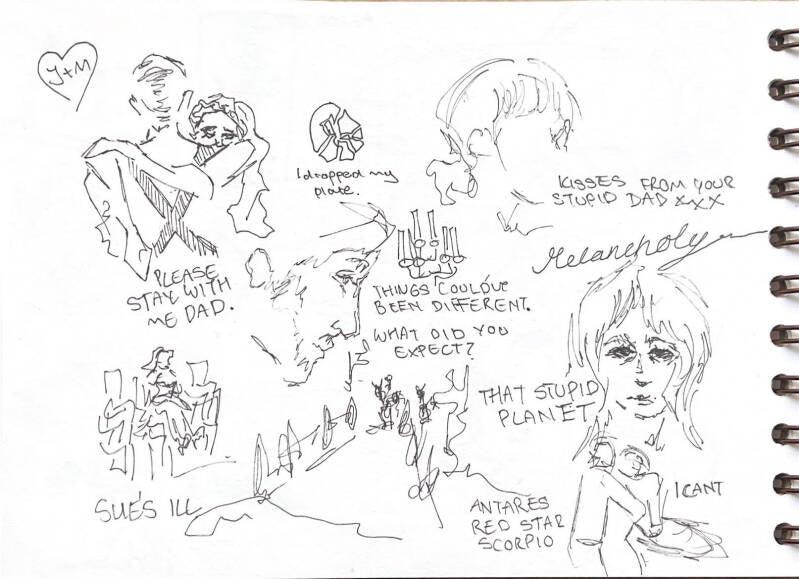 J+M
I dropped my
plate.
KISSES FROM YOUR
STUPID DAD XXX
Melancholy
PLEASE
STAY WITH
ME DAD.
THINGS COULD'VE
BEEN DIFFERENT.
WHAT DID YOU
EXPECT?
THAT STUPID
PLANET
SUE'S ILL
ANTARES
RED STAR
SCORPIO
I CANT